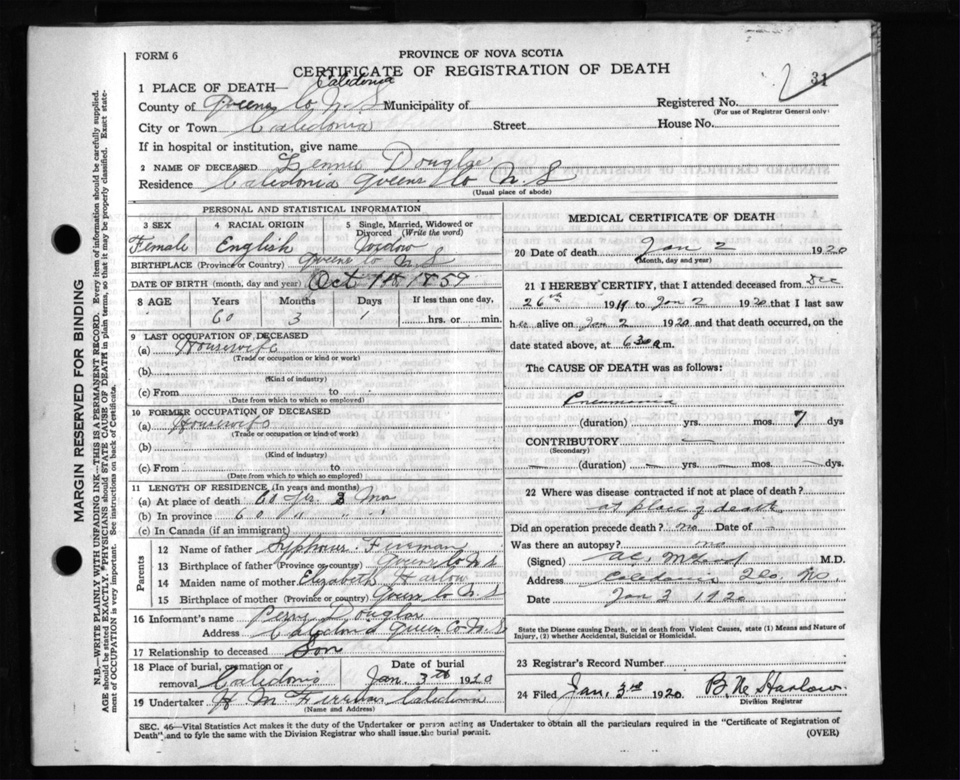 FORM 6
PROVINCE OF NOVA SCOTIA
CERTIFICATE OF REGISTRATION OF DEATH
31
1 PLACE OF DEATH— Caledonia
County of Queens Co N S Municipality of
Registered No.
(For use of Registrar General only)
City or Town Caledonia Street House No.
If in hospital or institution, give name
2 NAME OF DECEASED Douglas
Residence Caledonia Queens Co N. S
(Usual place of abode)
PERSONAL AND STATISTICAL INFORMATION
3 SEX
Female
4 RACIAL ORIGIN
English
5 Single, Married, Widowed or Divorced (Write the word)
Widow
BIRTHPLACE (Province or Country) Queens Co N S
DATE OF BIRTH (month, day and year) Oct 1st 1859
8 AGE Years Months Days If less than one day,
60 3 1 hrs. or min.
9 LAST OCCUPATION OF DECEASED
(a) Housewife
(Trade or occupation or kind or work)
(b)
(Kind of industry)
(c) From to
(Date from which to which so employed)
10 FORMER OCCUPATION OF DECEASED
(a) Housewife
(Trade or occupation or kind of work)
(b)
(Kind of industry)
(c) From to
(Date from which to which so employed)
11 LENGTH OF RESIDENCE (In years and months)
(a) At place of death 60 yrs 3 Mo
(b) In province 60 " " "
(c) In Canada (if an immigrant)
Parents
12 Name of father Freeman
13 Birthplace of father (Province or country) Queens Co N S
14 Maiden name of mother Elizabeth Harlow
15 Birthplace of mother (Province or country) Queens Co N S
16 Informant's name Douglas
Address Caledonia Queens Co N S
17 Relationship to deceased Son
18 Place of burial, cremation or removal Caledonia
Date of burial Jan. 3rd 1920
19 Undertaker Freeman Caledonia
(Name and Address)
MEDICAL CERTIFICATE OF DEATH
20 Date of death Jan 2 1920
(Month, day and year)
21 I HEREBY CERTIFY, that I attended deceased from Dec
26th 1919 to Jan 2 1920 that I last saw
her alive on Jan 2 1920 and that death occurred, on the
date stated above, at 6 30 a m.
The CAUSE OF DEATH was as follows:
Pneumonia
(duration) yrs. mos. 7 dys
CONTRIBUTORY —
(Secondary)
— (duration) — yrs. — mos. — dys.
22 Where was disease contracted if not at place of death?
at place of death
Did an operation precede death? no Date of —
Was there an autopsy? no
(Signed) M.D.
Address Caledonia
Date Jan 3 1920
State the Disease causing Death, or in death from Violent Causes, state (1) Means and Nature of Injury, (2) whether Accidental, Suicidal or Homicidal.
23 Registrar's Record Number
24 Filed Jan. 3rd 1920 Harlow
Division Registrar
SEC. 46—Vital Statistics Act makes it the duty of the Undertaker or person acting as Undertaker to obtain all the particulars required in the "Certificate of Registration of Death" and to fyle the same with the Division Registrar who shall issue the burial permit.
(OVER)
MARGIN RESERVED FOR BINDING
N.B.—WRITE PLAINLY WITH UNFADING INK—THIS IS A PERMANENT RECORD. Every item of information should be carefully supplied. AGE should be stated EXACTLY. PHYSICIANS should STATE CAUSE OF DEATH in plain terms, so that it may be properly classified. Exact statement of OCCUPATION is very important. See instructions on back of Certificate.